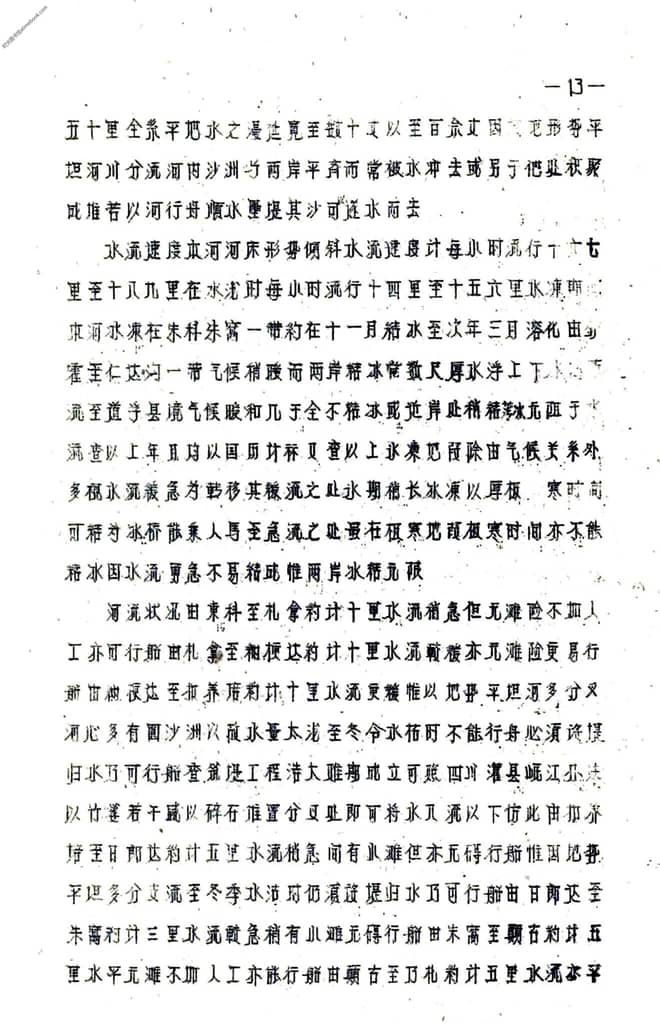 —13—
五十里全系平地水之漫延宽至数十丈以至百余丈因 地形势平
坦河川分流河内沙洲与两岸平齐而常被水冲去或另于他处积聚
成堆若以河行舟顺水里堤其沙可逐水而去
水流速度本河河床形势倾斜水流速度计每小时流行十六七
里至十八九里在水涸时每小时流行十四里至十五六里水冻即
东河水冻在朱科朱窝一带约在十一月结冰至次年三月溶化由
霍至仁达沟一带气候稍暖而两岸结冰常数尺厚水浮上下水
流至道孚县境气候暖和几于全不结冰或近岸处稍结薄冰无阻于水
流查以上年月均以国历计标又查以上水冻地段除由气候关系外
多视水流缓急为转移其缓流之处水期稍长冰冻以厚极 寒时间
可结为冰桥能乘人马至急流之处虽在极寒地段极寒时间亦不能
结冰因水流勇急不易结成惟两岸冰结尤破
河流状况由东科至札拿约计十里水流稍急但无滩险不加人
工亦可行船由札拿至 梗达约计十里水流较缓亦无滩险更易行
船由 梗达至扣养 约计十里水流更缓惟以地势平坦河多分叉
河心多有圆沙洲以致水量太浅至冬令水枯时不能行舟必须筑堤
归水乃可行船查筑堤工程浩大难期成立可照四川灌县岷江办法
以竹篓若干盛以碎石堆置分叉处即可将水 流以下仿此由扣养
培至日郎达约计五里水流稍急间有小滩但亦无碍行船惟因地势
平坦多分支流至冬季水涸时仍须筑堤归水乃可行船由日郎达至
朱窝约计三里水流较急稍有小滩无碍行船由朱窝至颗古约计五
里水平无滩不加人工亦能行船由颗古至乃札约计五里水流水平